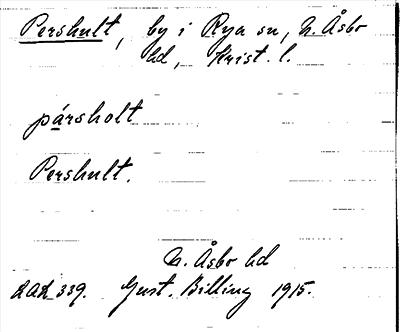 Pershult, by i Rya sn, N. Åsbo
hd, Krist. l.
pársholt
Pershult.
N. Åsbo hd
339. Gust. Billing 1915.